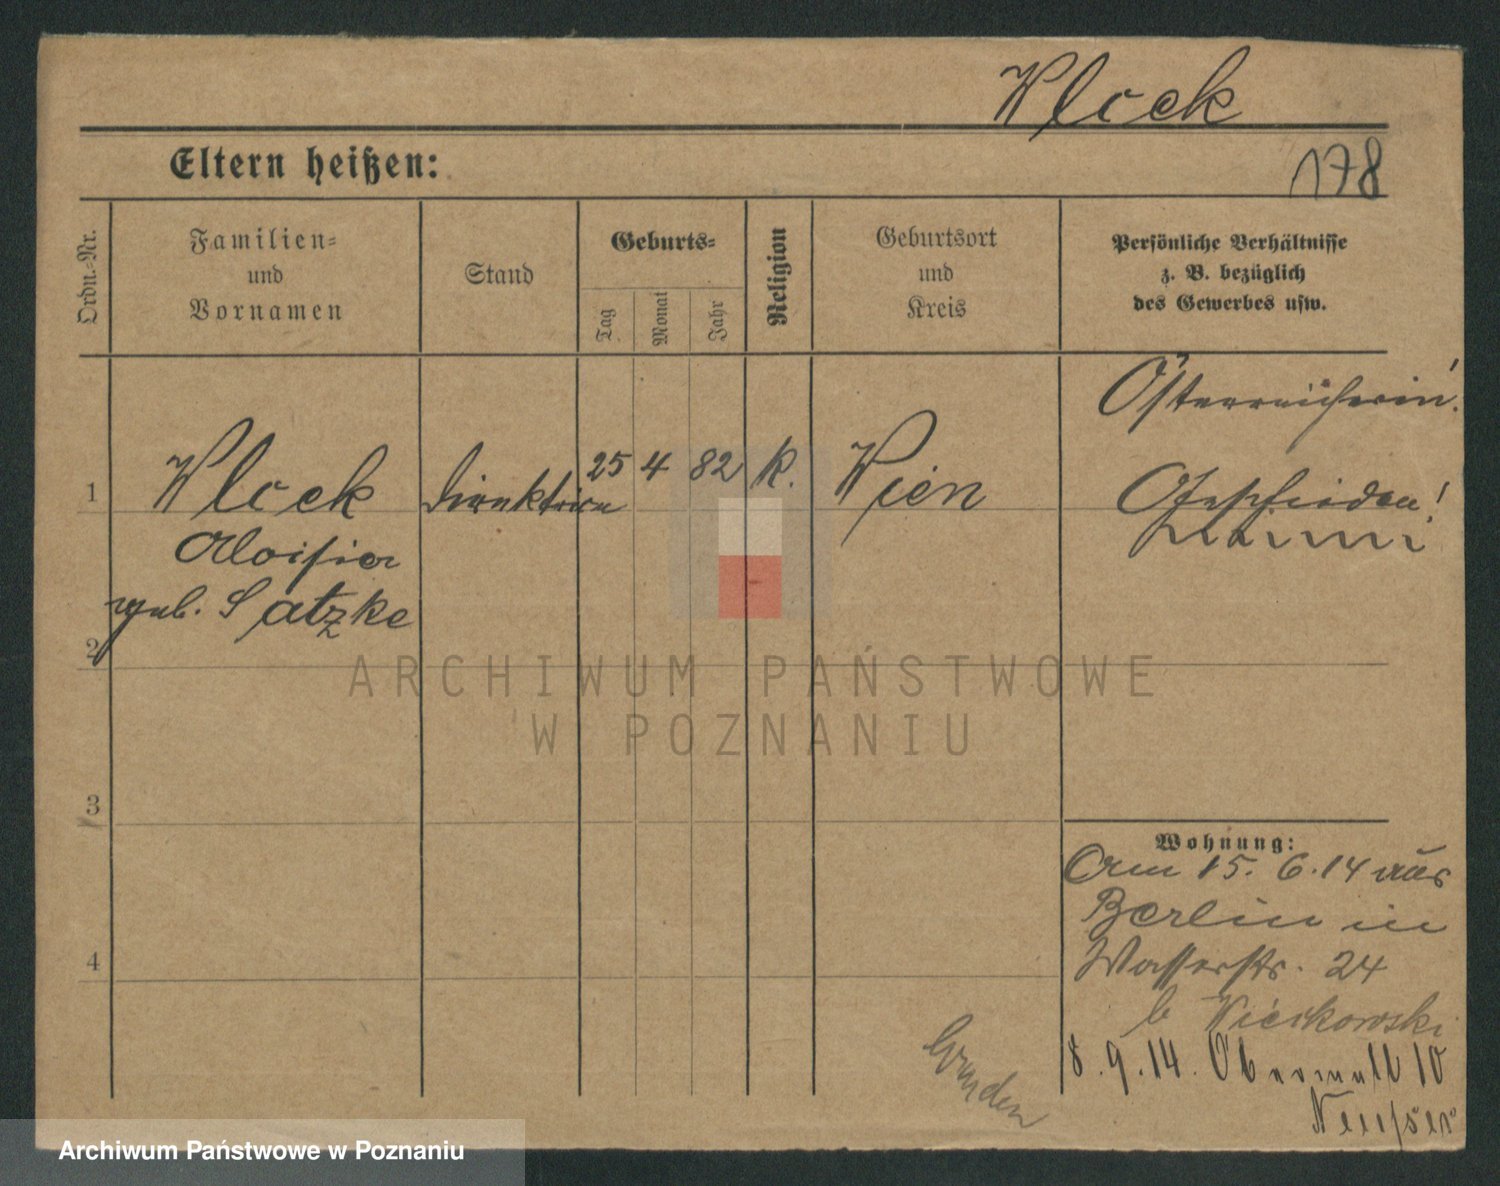 Wlcek
Eltern heißen:
178
Ordn.-Nr.
Familien-
und
Vornamen
Stand
Geburts-
Tag
Monat
Jahr
Religion
Geburtsort
und
Kreis
Persönliche Verhältnisse
z. B. bezüglich
des Gewerbes usw.
Österreicherin!
1
Wlcek
Direktrice
25
4
82
k.
Wien
Geschieden!
Aloisia
geb. Satzke
2
3
4
Wohnung:
Am 15. 6. 14 aus
Berlin in
Wasserstr. 24
b Wieckowski
8. 9. 14. Oberwall 10
ARCHIWUM PAŃSTWOWE
W POZNANIU
Archiwum Państwowe w Poznaniu